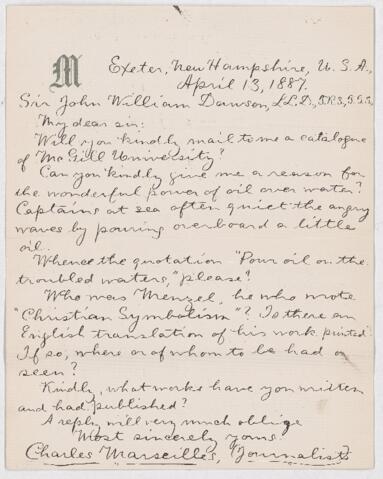 M
Exeter, New Hampshire, U. S. A.,
April 13, 1887.
Sir John William Dawson, LL.D., F.R.S., F.G.S.,
My dear sir:
Will you kindly mail to me a catalogue
of McGill University?
Can you kindly give me a reason for
the wonderful power of oil over water?
Captains at sea often quiet the angry
waves by pouring overboard a little
oil.
Whence the quotation "Pour oil on the
troubled waters," please?
Who was Menzel, he who wrote
"Christian Symbolism"? Is there an
English translation of his work printed?
If so, where or of whom to be had or
seen?
Kindly, what works have you written
and had published?
A reply will very much oblige
Most sincerely yours.
Charles Marseilles, Journalist.